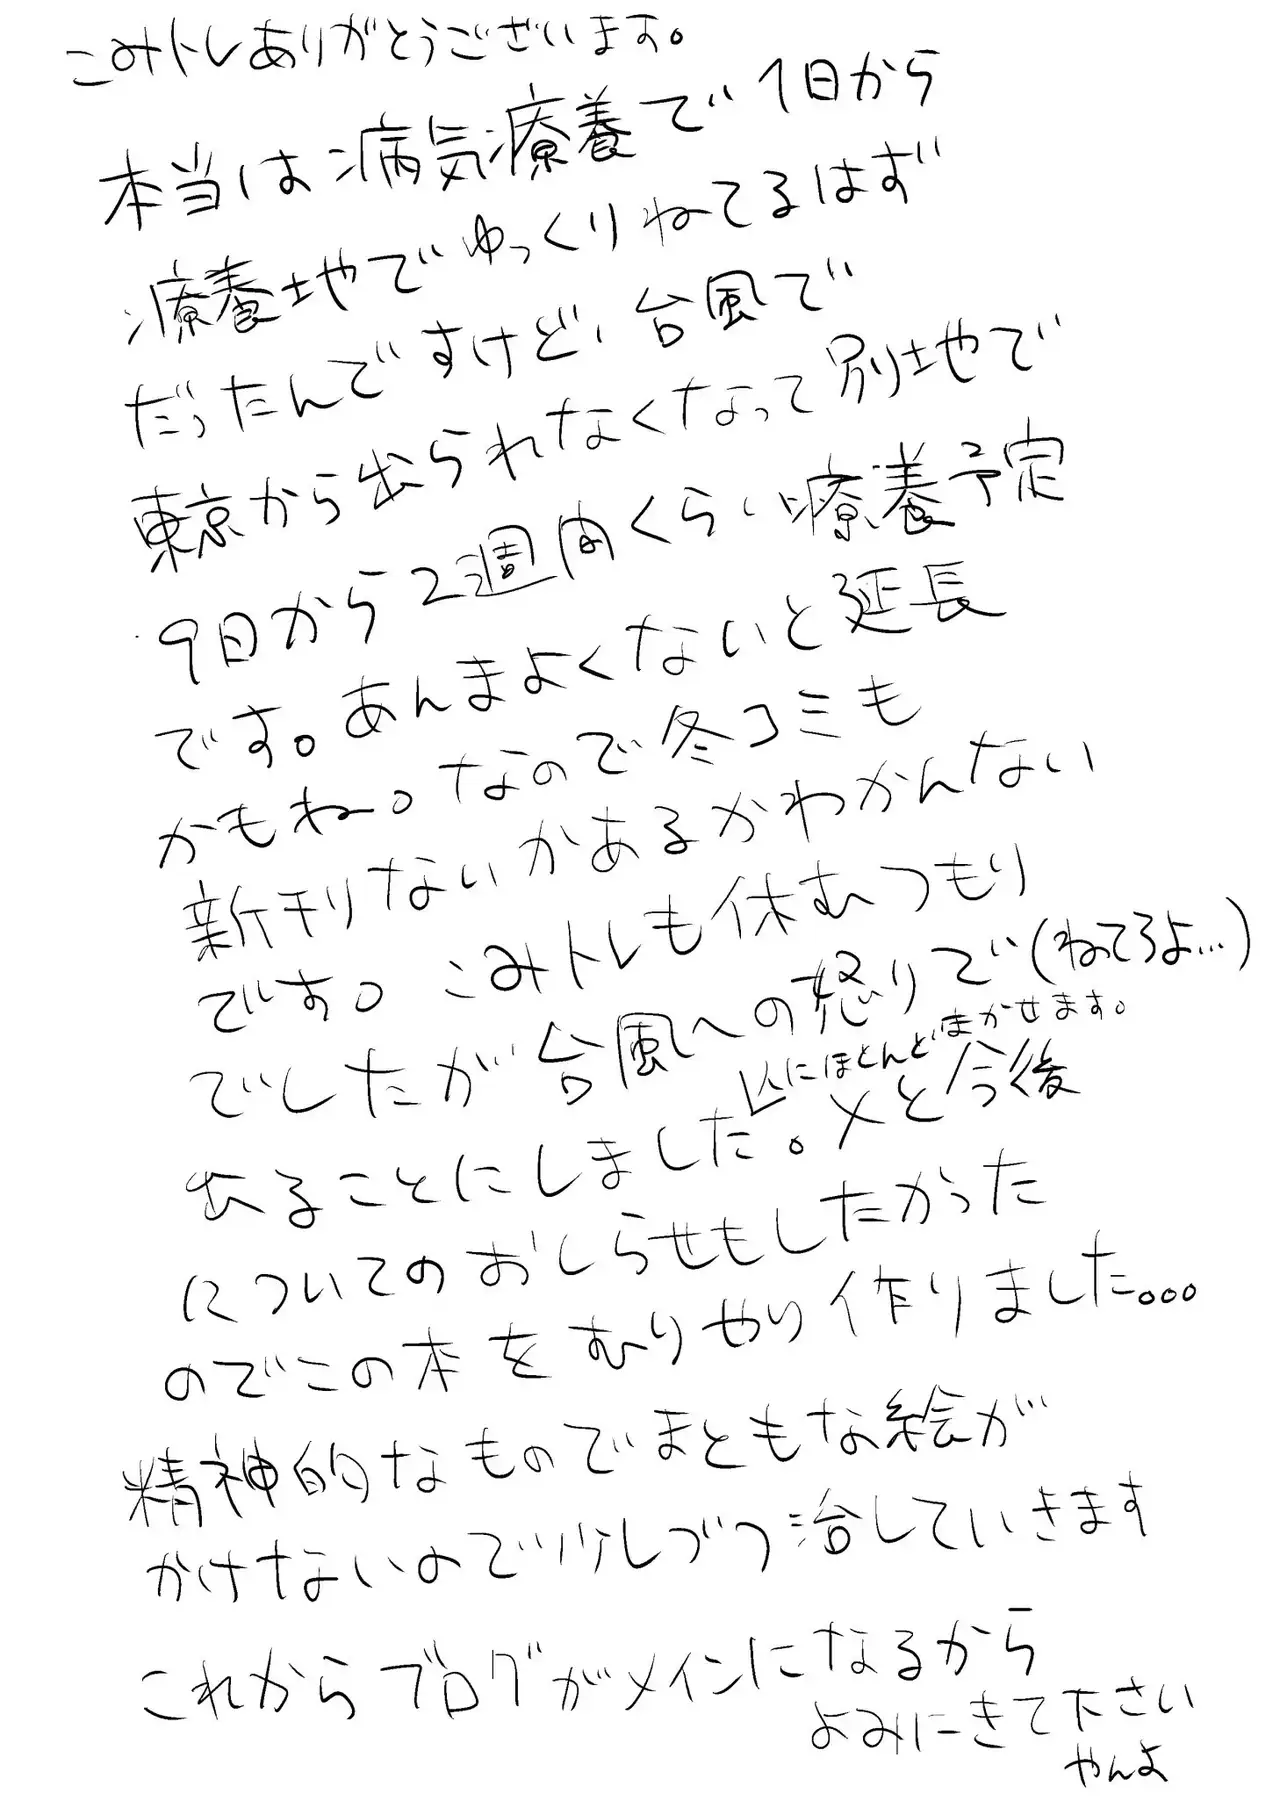 こみトレありがとうございます。
本当は病気療養で1日から
療養地やでゆっくりねてるはず
だったんですけど、台風で
東京から出られなくなって別地で
9日から2週間くらい療養予定
です。あんまよくないと延長
かもね。なので冬コミも
新刊ないかあるかわかんない
です。こみトレも休むつもり
でしたが台風への怒りで(ねてろよ…)
人にほとんどまかせます。
出ることにしました。と今後
についてのおしらせもしたかった
のでこの本をむりやり作りました。。。
精神的なものでまともな絵が
かけないので少しづつ治していきます
これからブログがメインになるから
よみにきて下さい
やんよ